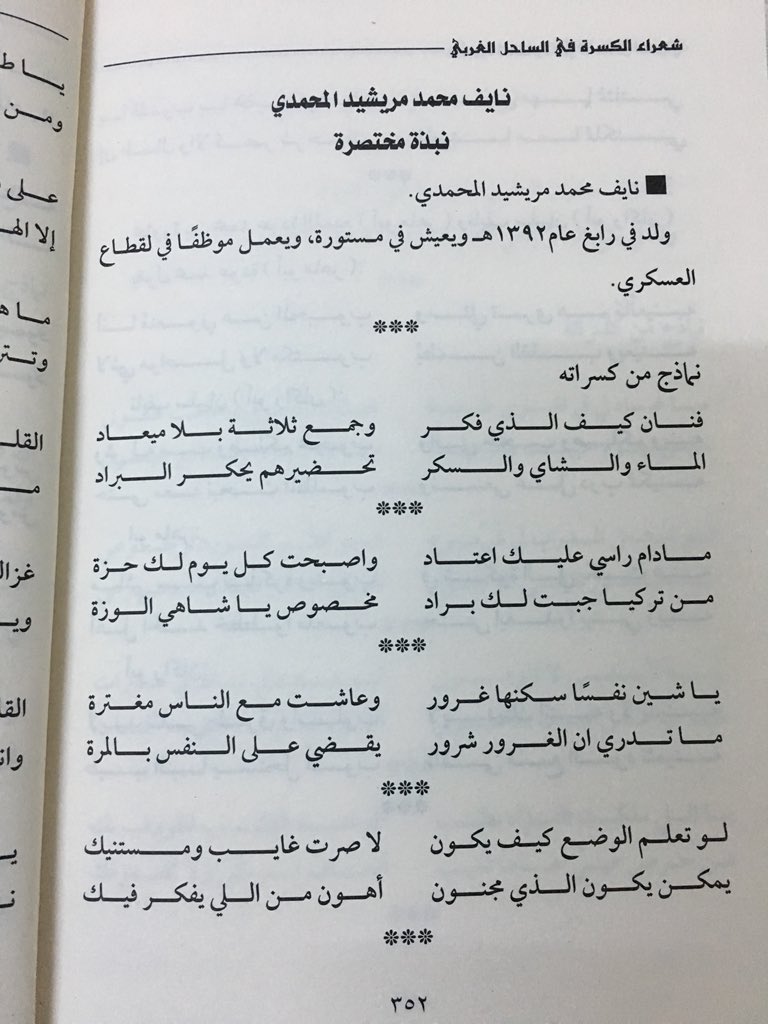 شعراء الكسرة في الساحل الغربي
نايف محمد مريشيد المحمدي
نبذة مختصرة
■ نايف محمد مريشيد المحمدي.
ولد في رابغ عام ١٣٩٢هـ ويعيش في مستورة، ويعمل موظفًا في لقطاع
العسكري.
***
نماذج من كسراته
فنان كيف الذي فكر وجمع ثلاثة بلا ميعاد
الماء والشاي والسكر تحضيرهم يحكر البراد
***
مادام راسي عليك اعتاد واصبحت كل يوم لك حزة
من تركيا جبت لك براد مخصوص يا شاهي الوزة
***
يا شين نفسًا سكنها غرور وعاشت مع الناس مغترة
ما تدري ان الغرور شرور يقضي على النفس بالمرة
***
لو تعلم الوضع كيف يكون لا صرت غايب ومستنيك
يمكن يكون الذي مجنون أهون من اللي يفكر فيك
***
٣٥٢
ومن
على
إلا
القلـ
غزال